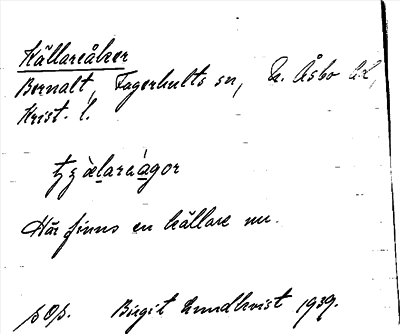 Källareåker
Bornalt, Fagerhults sn, N. Åsbo hd,
Krist. l.
Här finns en källare nu.
Birgit Lundkvist 1939.